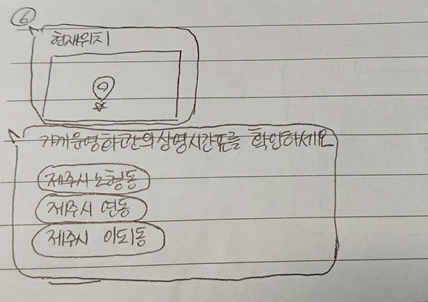 6
현재위치
가까운영화관의상영시간표를 확인하세요
제주시노형동
제주시 연동
제주시 이도동